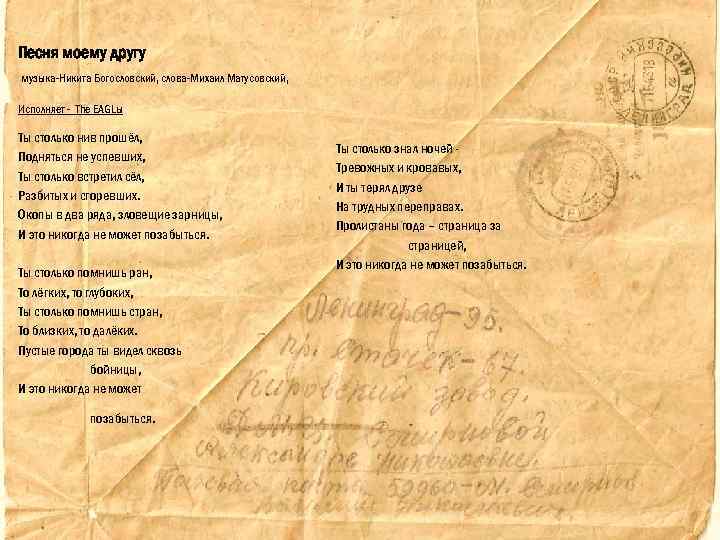 Песня моему другу
музыка-Никита Богословский, слова-Михаил Матусовский,
Исполняет - The EAGLы
Ты столько нив прошёл,
Подняться не успевших,
Ты столько встретил сёл,
Разбитых и сгоревших.
Окопы в два ряда, зловещие зарницы,
И это никогда не может позабыться.
Ты столько помнишь ран,
То лёгких, то глубоких,
Ты столько помнишь стран,
То близких, то далёких.
Пустые города ты видел сквозь
бойницы,
И это никогда не может
позабыться.
Ты столько знал ночей -
Тревожных и кровавых,
И ты терял друзе
На трудных переправах.
Пролистаны года – страница за
страницей,
И это никогда не может позабыться.
Ленинград-95.
пр. Стачек-67.
Кировский завод.
Смирновой
Александре Николаевне.
59960-